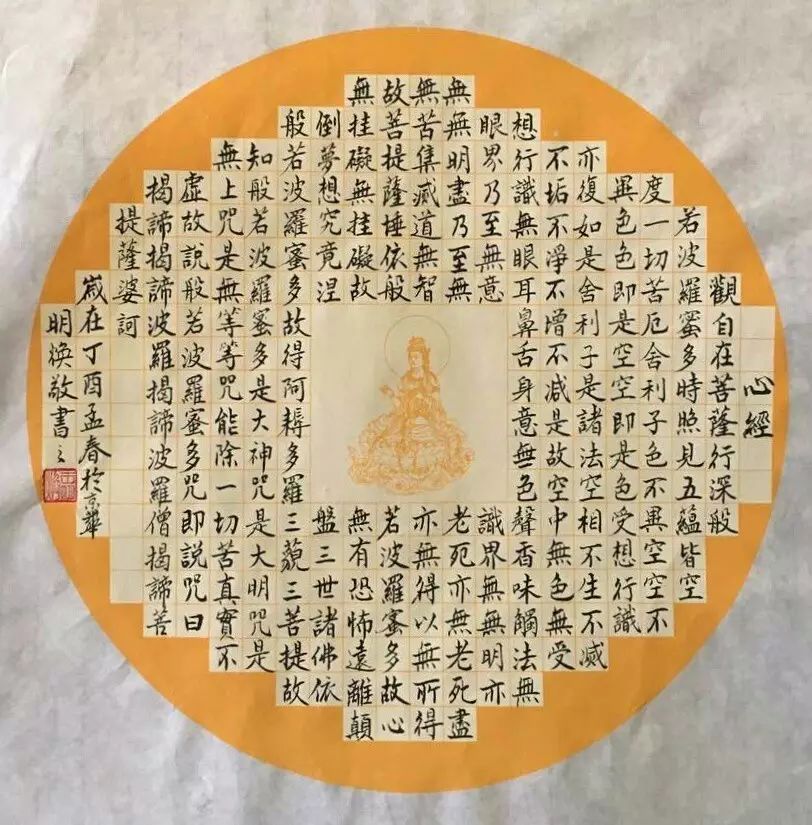 心經
觀自在菩薩行深般
若波羅蜜多時照見五蘊皆空
度一切苦厄舍利子色不異空空不
異色色即是空空即是色受想行識
亦復如是舍利子是諸法空相不生不滅
不垢不淨不增不減是故空中無色無受
想行識無眼耳鼻舌身意無色聲香味觸法無
眼界乃至無意識界無無明亦
無無明盡乃至無老死亦無老死盡
無苦集滅道無智亦無得以無所得
故菩提薩埵依般若波羅蜜多故心
無挂礙無挂礙故無有恐怖遠離顛
倒夢想究竟涅盤三世諸佛依
般若波羅蜜多故得阿耨多羅三藐三菩提故
知般若波羅蜜多是大神咒是大明咒是
無上咒是無等等咒能除一切苦真實不
虛故說般若波羅蜜多咒即說咒曰
揭諦揭諦波羅揭諦波羅僧揭諦菩
提薩婆訶
歲在丁酉孟春於京華
明煥敬書之